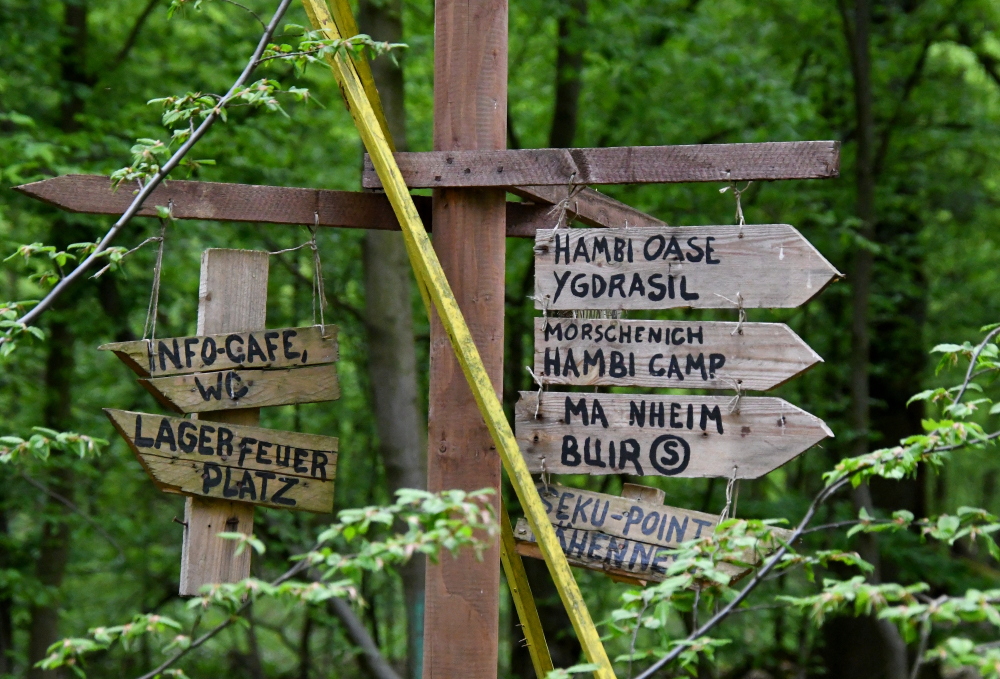 INFO-CAFE,
WC
LAGERFEUER
PLATZ
HAMBI OASE
YGDRASIL
MORSCHENICH
HAMBI CAMP
MA NHEIM
BUIR Ⓢ
SEKU-POINT